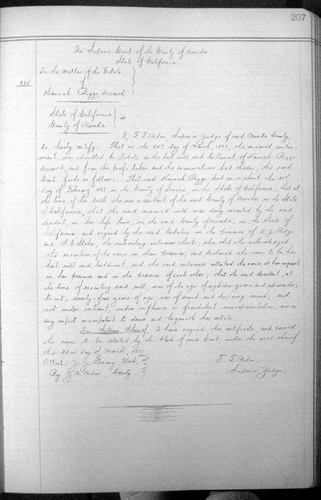 207
In Superior Court of the County of Nevada
State of California
In the Matter of the Estate
of
Hannah Riggs deceased
State of California
County of Nevada } ss
I, F. T. Nilon, Superior Judge of said Nevada County,
do hereby certify: That on the 22nd day of March, 1897, the annexed instru-
ment was admitted to Probate as the last will and testament of Hannah Riggs
deceased, and from the proofs taken and the examinations had therein, the said
Court finds as follows: That said Hannah Riggs died on or about the
day of February 1897, in the County of in the State of California, that at
the time of her death she was a resident of the said County of Nevada in the State
of California, that the said annexed will was duly executed by the said
decedent in her life time, in the said County of Nevada, in the State of
California and signed by the said testatrix in the presence of
and the subscribing witnesses thereto; also that she acknowledged
the execution of the same in their presence, and declared the same to be her
last will and testament, and the said witnesses attested the same at her request
in her presence and in the presence of each other; that the said decedent, at
the time of executing said will, was of the age of eighteen years and upwards,
to wit, years of age, was of sound and disposing mind, and
not under restraint, undue influence or fraudulent misrepresentation, nor in
any respect incompetent to devise and bequeath her estate.
In Witness Whereof, I have signed this certificate, and caused
the same to be attested by the Clerk of said Court, under the seal thereof
this 22nd day of March, 1897.
Attest: Clerk F. T. Nilon,
By Deputy Superior Judge.